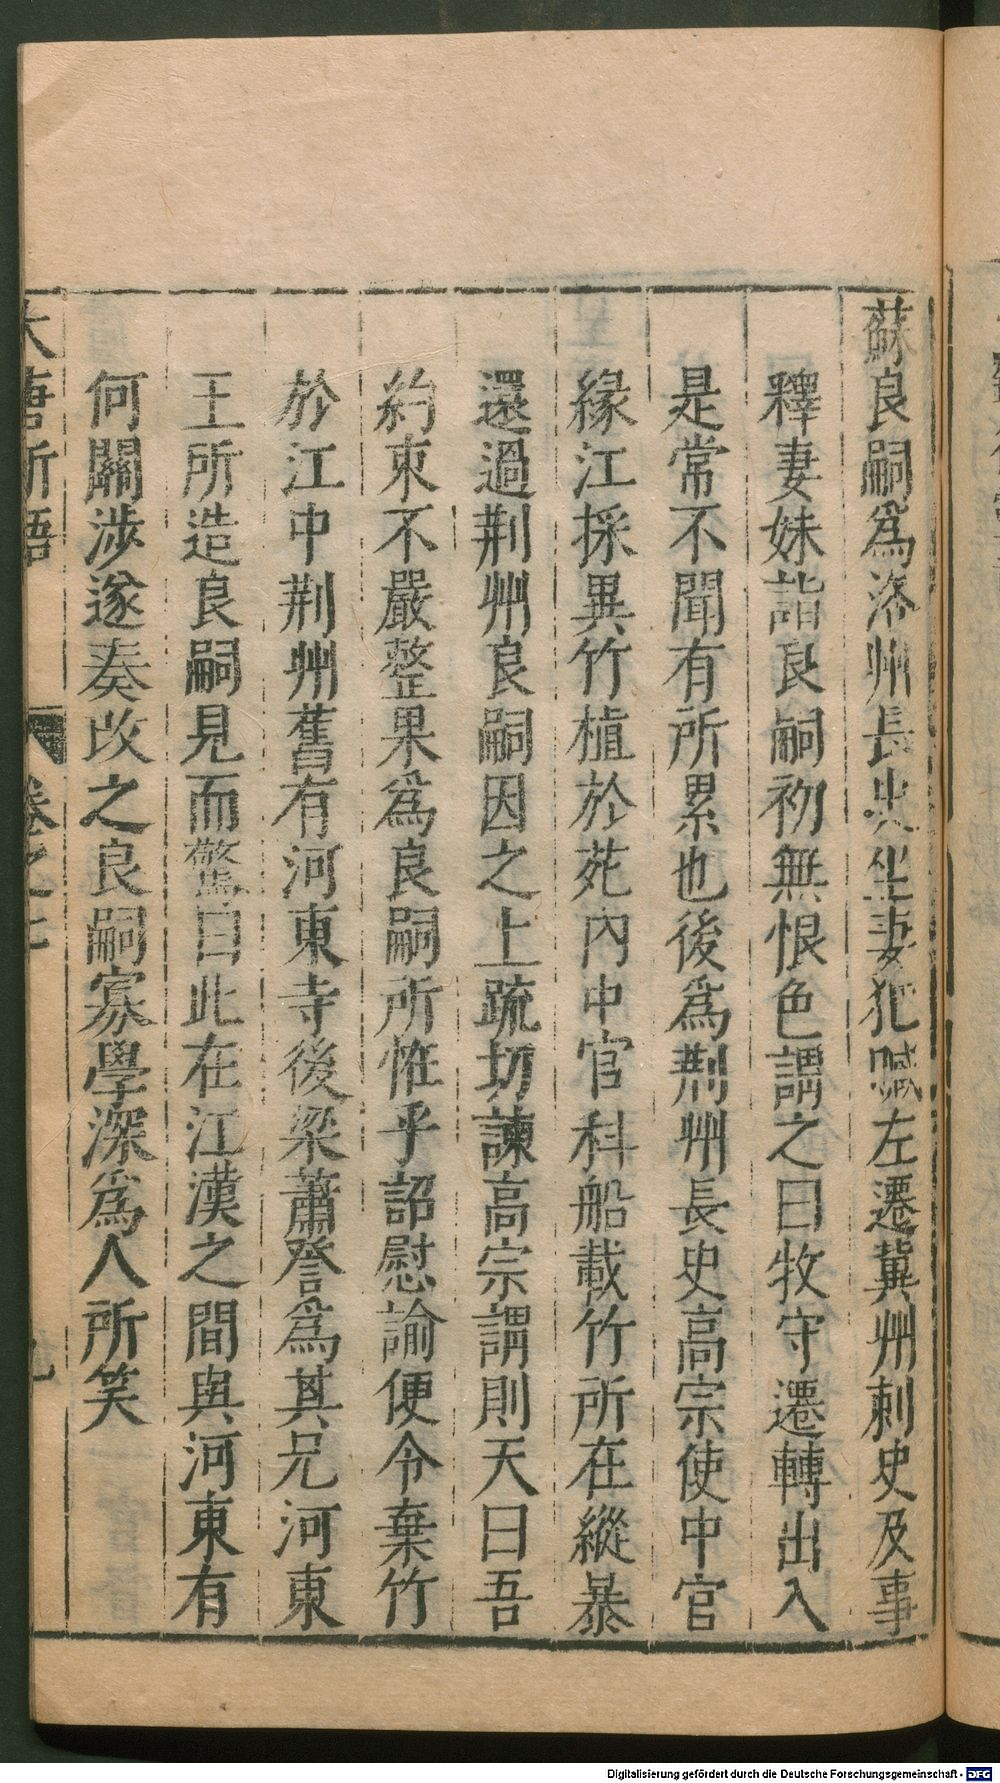 蘇良嗣爲洛州長史坐妻犯贓左遷冀州刺史及事
釋妻妹詣良嗣初無恨色謂之曰牧守遷轉出入
是常不聞有所累也後爲荆州長史高宗使中官
緣江採異竹植於苑內中官科船載竹所在縱暴
還過荆州良嗣因之上疏切諫高宗謂則天曰吾
約束不嚴整果爲良嗣所恠乎詔慰諭便令棄竹
於江中荆州舊有河東寺後梁蕭詧爲其兄河東
王所造良嗣見而驚曰此在江漢之間與河東有
何關涉遂奏改之良嗣寡學深爲人所笑
大唐新語 卷之七 九
Digitalisierung gefördert durch die Deutsche Forschungsgemeinschaft - DFG